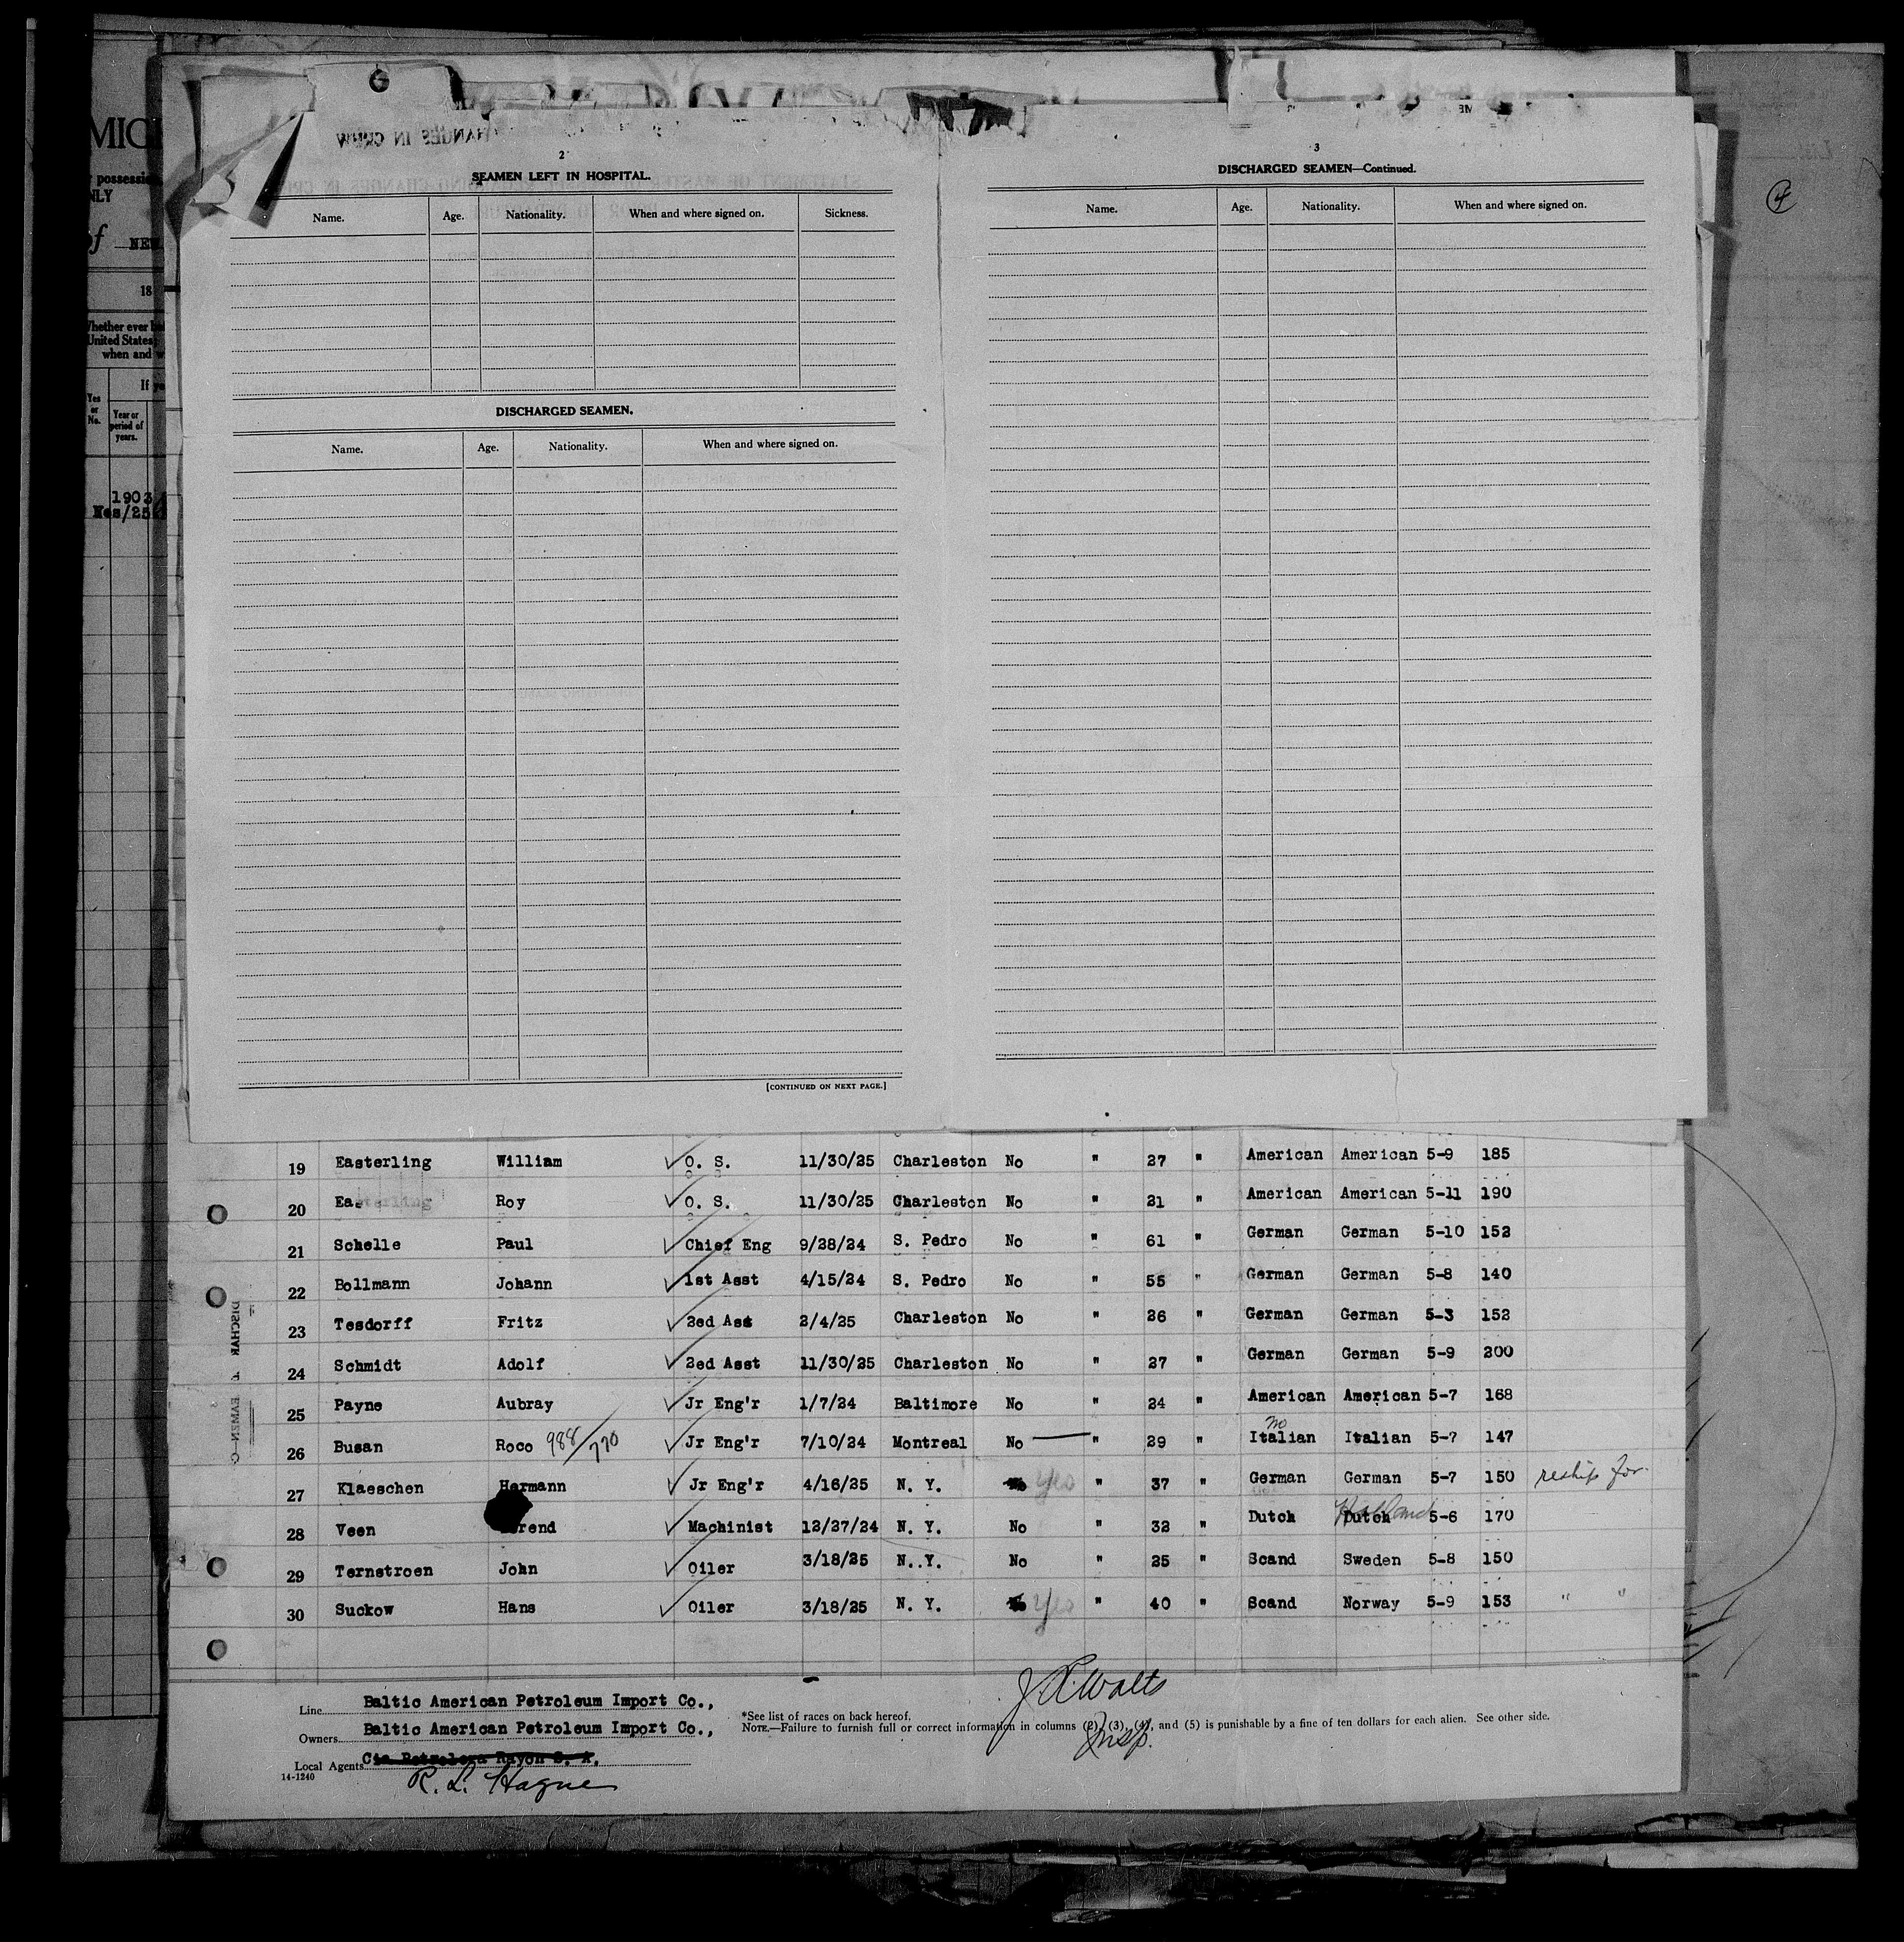 MIGI
possessi
NLY
of NEW
18
Whether ever b
United States
when and w
If ye
Yes
or
No.
Year or
period of
years.
1903
Nes/25
CHANGES IN CREW
2
SEAMEN LEFT IN HOSPITAL.
Name. Age. Nationality. When and where signed on. Sickness.
DISCHARGED SEAMEN.
Name. Age. Nationality. When and where signed on.
[CONTINUED ON NEXT PAGE.]
3
DISCHARGED SEAMEN—Continued.
Name. Age. Nationality. When and where signed on.
4
19 Easterling William O. S. 11/30/25 Charleston No " 27 " American American 5-9 185
20 Easterling Roy O. S. 11/30/25 Charleston No " 21 " American American 5-11 190
21 Schelle Paul Chief Eng 9/28/24 S. Pedro No " 61 " German German 5-10 152
22 Bollmann Johann 1st Asst 4/15/24 S. Pedro No " 55 " German German 5-8 140
23 Tesdorff Fritz 2ed Ast 2/4/25 Charleston No " 26 " German German 5-3 152
24 Schmidt Adolf 2ed Asst 11/30/25 Charleston No " 27 " German German 5-9 200
25 Payne Aubray Jr Eng'r 1/7/24 Baltimore No " 24 " American American 5-7 168
26 Busan Roco 988/770 Jr Eng'r 7/10/24 Montreal No " 29 " no Italian Italian 5-7 147
27 Klaeschen Hermann Jr Eng'r 4/16/25 N. Y. No yes " 37 " German German 5-7 150 reship for.
28 Veen rend Machinist 12/27/24 N. Y. No " 32 " Dutch Dutch Holland 5-6 170
29 Ternstroen John Oiler 3/18/25 N. Y. No " 25 " Scand Sweden 5-8 150
30 Suckow Hans Oiler 3/18/25 N. Y. No yes " 40 " Scand Norway 5-9 153 " "
Line Baltic American Petroleum Import Co.,
Owners Baltic American Petroleum Import Co.,
Local Agents Cia Petrolera Rayon S. A.
14-1240
R. L. Hague
*See list of races on back hereof.
NOTE.—Failure to furnish full or correct information in columns (2), (3), (4), and (5) is punishable by a fine of ten dollars for each alien. See other side.
J. A. Walts
Insp.